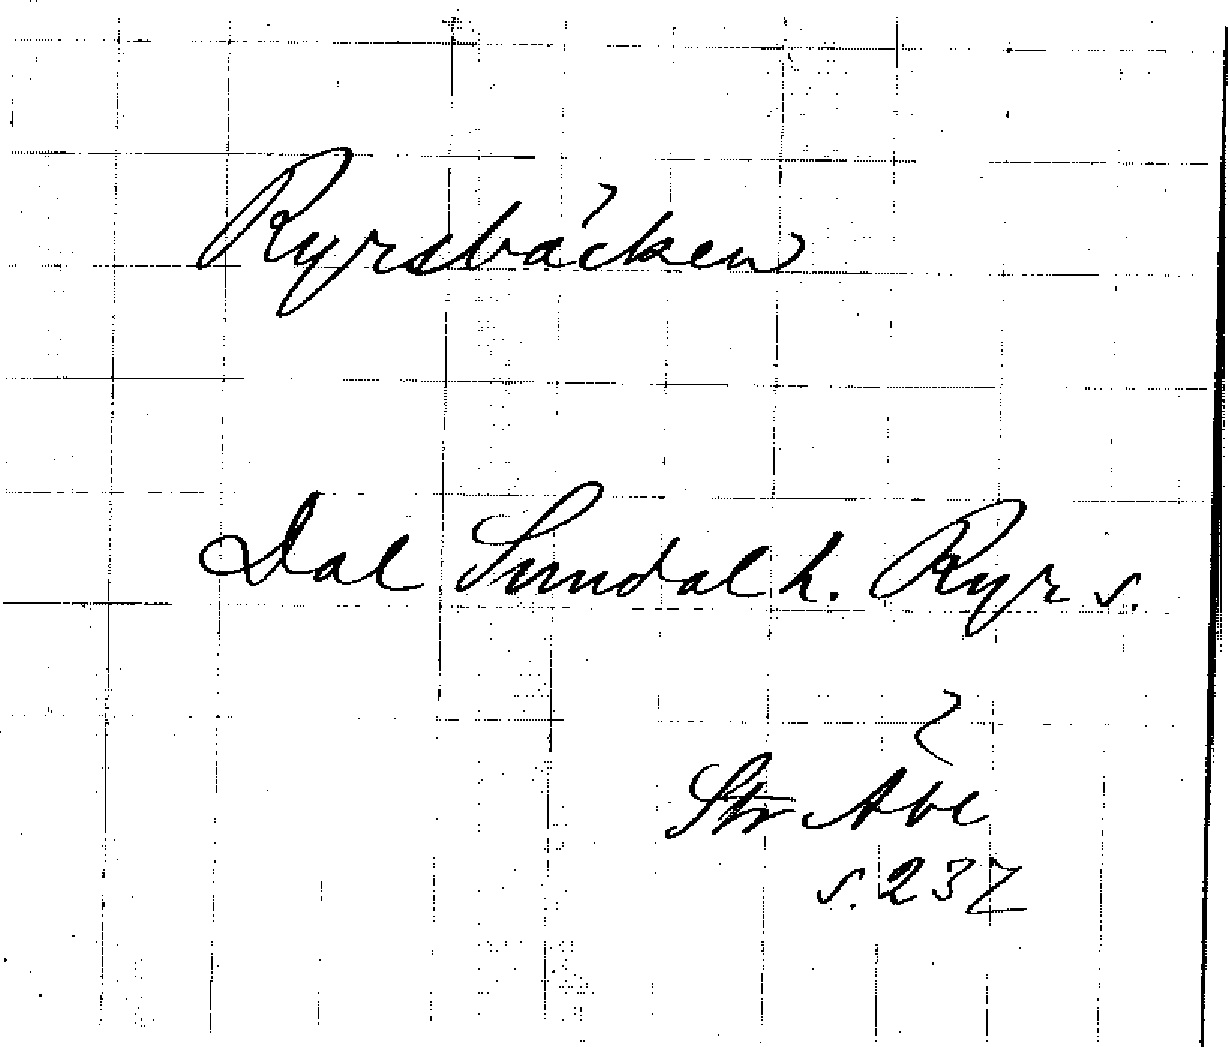 Ryrsbäcken
Dal Sundal h. Ryr s.
s. 237